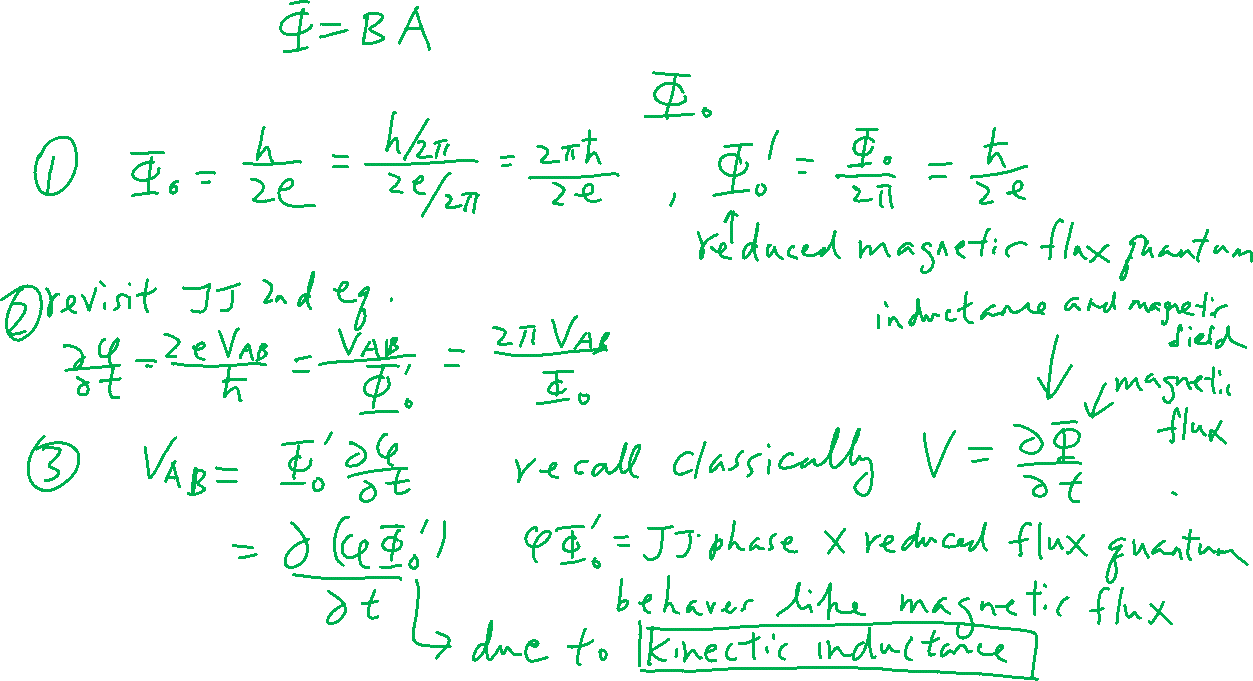 Φ = B A
Φ₀
① Φ₀ = h/2e = (h/2π)/(2e/2π) = 2πħ/2e , Φ₀' = Φ₀/2π = ħ/2e
reduced magnetic flux quantum
② revisit JJ 2nd eq.
inductance and magnetic field
∂φ/∂t = 2eV_AB/ħ = V_AB/Φ₀' = 2πV_AB/Φ₀
magnetic flux
③ V_AB = Φ₀' ∂φ/∂t recall classically V = ∂Φ/∂t .
= ∂(φΦ₀')/∂t φΦ₀' = JJ phase x reduced flux quantum
behaves like magnetic flux
due to kinectic inductance